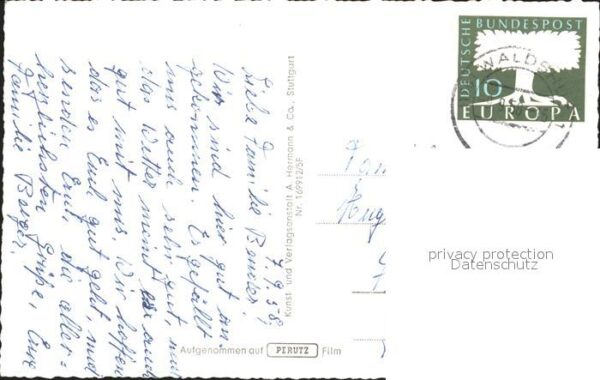 7.9.58
Liebe Familie Bender!
Wir sind hier gut an-
gekommen. Es gefällt
uns auch sehr gut, und
das Wetter meint es auch
gut mit uns. Wir hoffen
das es Euch gut geht, und
senden Euch die aller-
herzlichsten Grüße, Eure
Familie Berger.
Kunst- und Verlagsanstalt A. Hermann & Co., Stuttgart
Nr. 169912/5F
Aufgenommen auf PERUTZ Film
DEUTSCHE BUNDESPOST
10
EUROPA
WALDS
Fam
Hug
privacy protection
Datenschutz